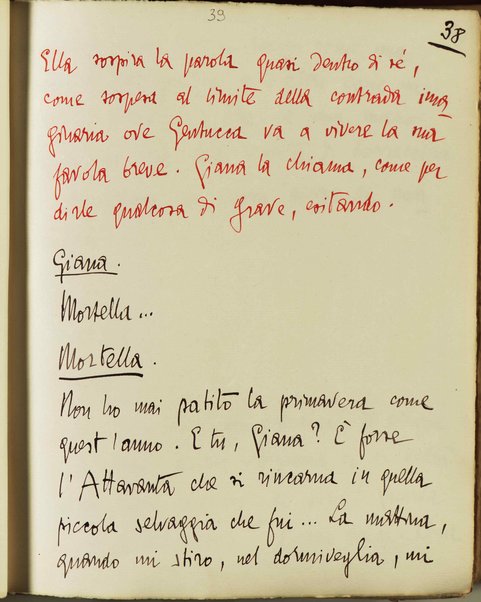 39
38
Ella sospira la parola quasi dentro di sé,
come sospesa al limite della contrada ima-
ginaria ove Gentucca va a vivere la sua
favola breve. Giana la chiama, come per
dirle qualcosa di grave, esitando.
Giana.
Mortella...
Mortella.
Non ho mai patito la primavera come
quest'anno. E tu, Giana? È forse
l'Attavanta che si rincarna in quella
piccola selvaggia che fui... La mattina,
quando mi stiro, nel dormiveglia, mi